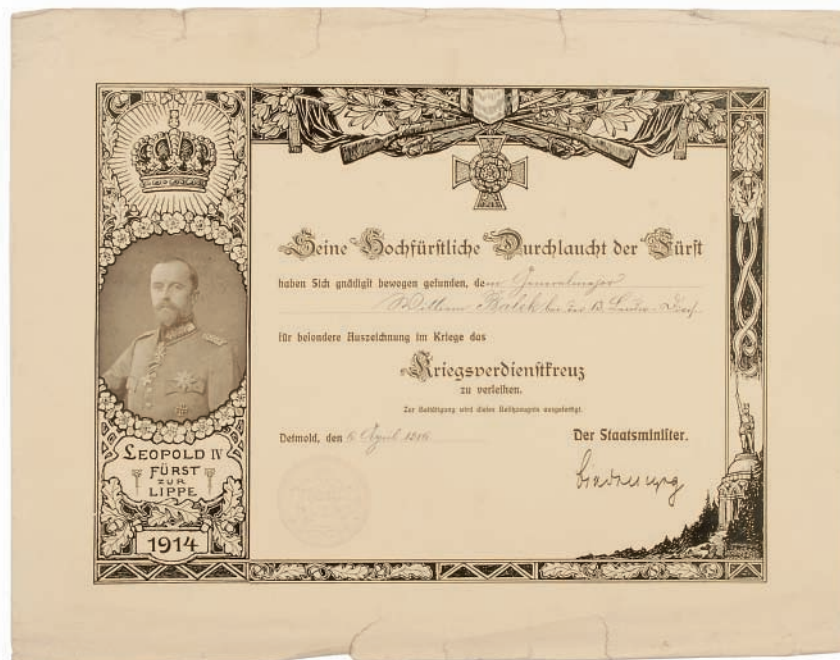 LEOPOLD IV
FÜRST
ZUR
LIPPE
1914
Seine Hochfürstliche Durchlaucht der Fürst
haben Sich gnädigst bewegen gefunden, dem Generalmajor
William Balck
für besondere Auszeichnung im Kriege das
Kriegsverdienstkreuz
zu verleihen.
Zur Bestätigung wird dieses Besitzzeugnis ausgefertigt.
Detmold, den 6. April 1916
Der Staatsminister.